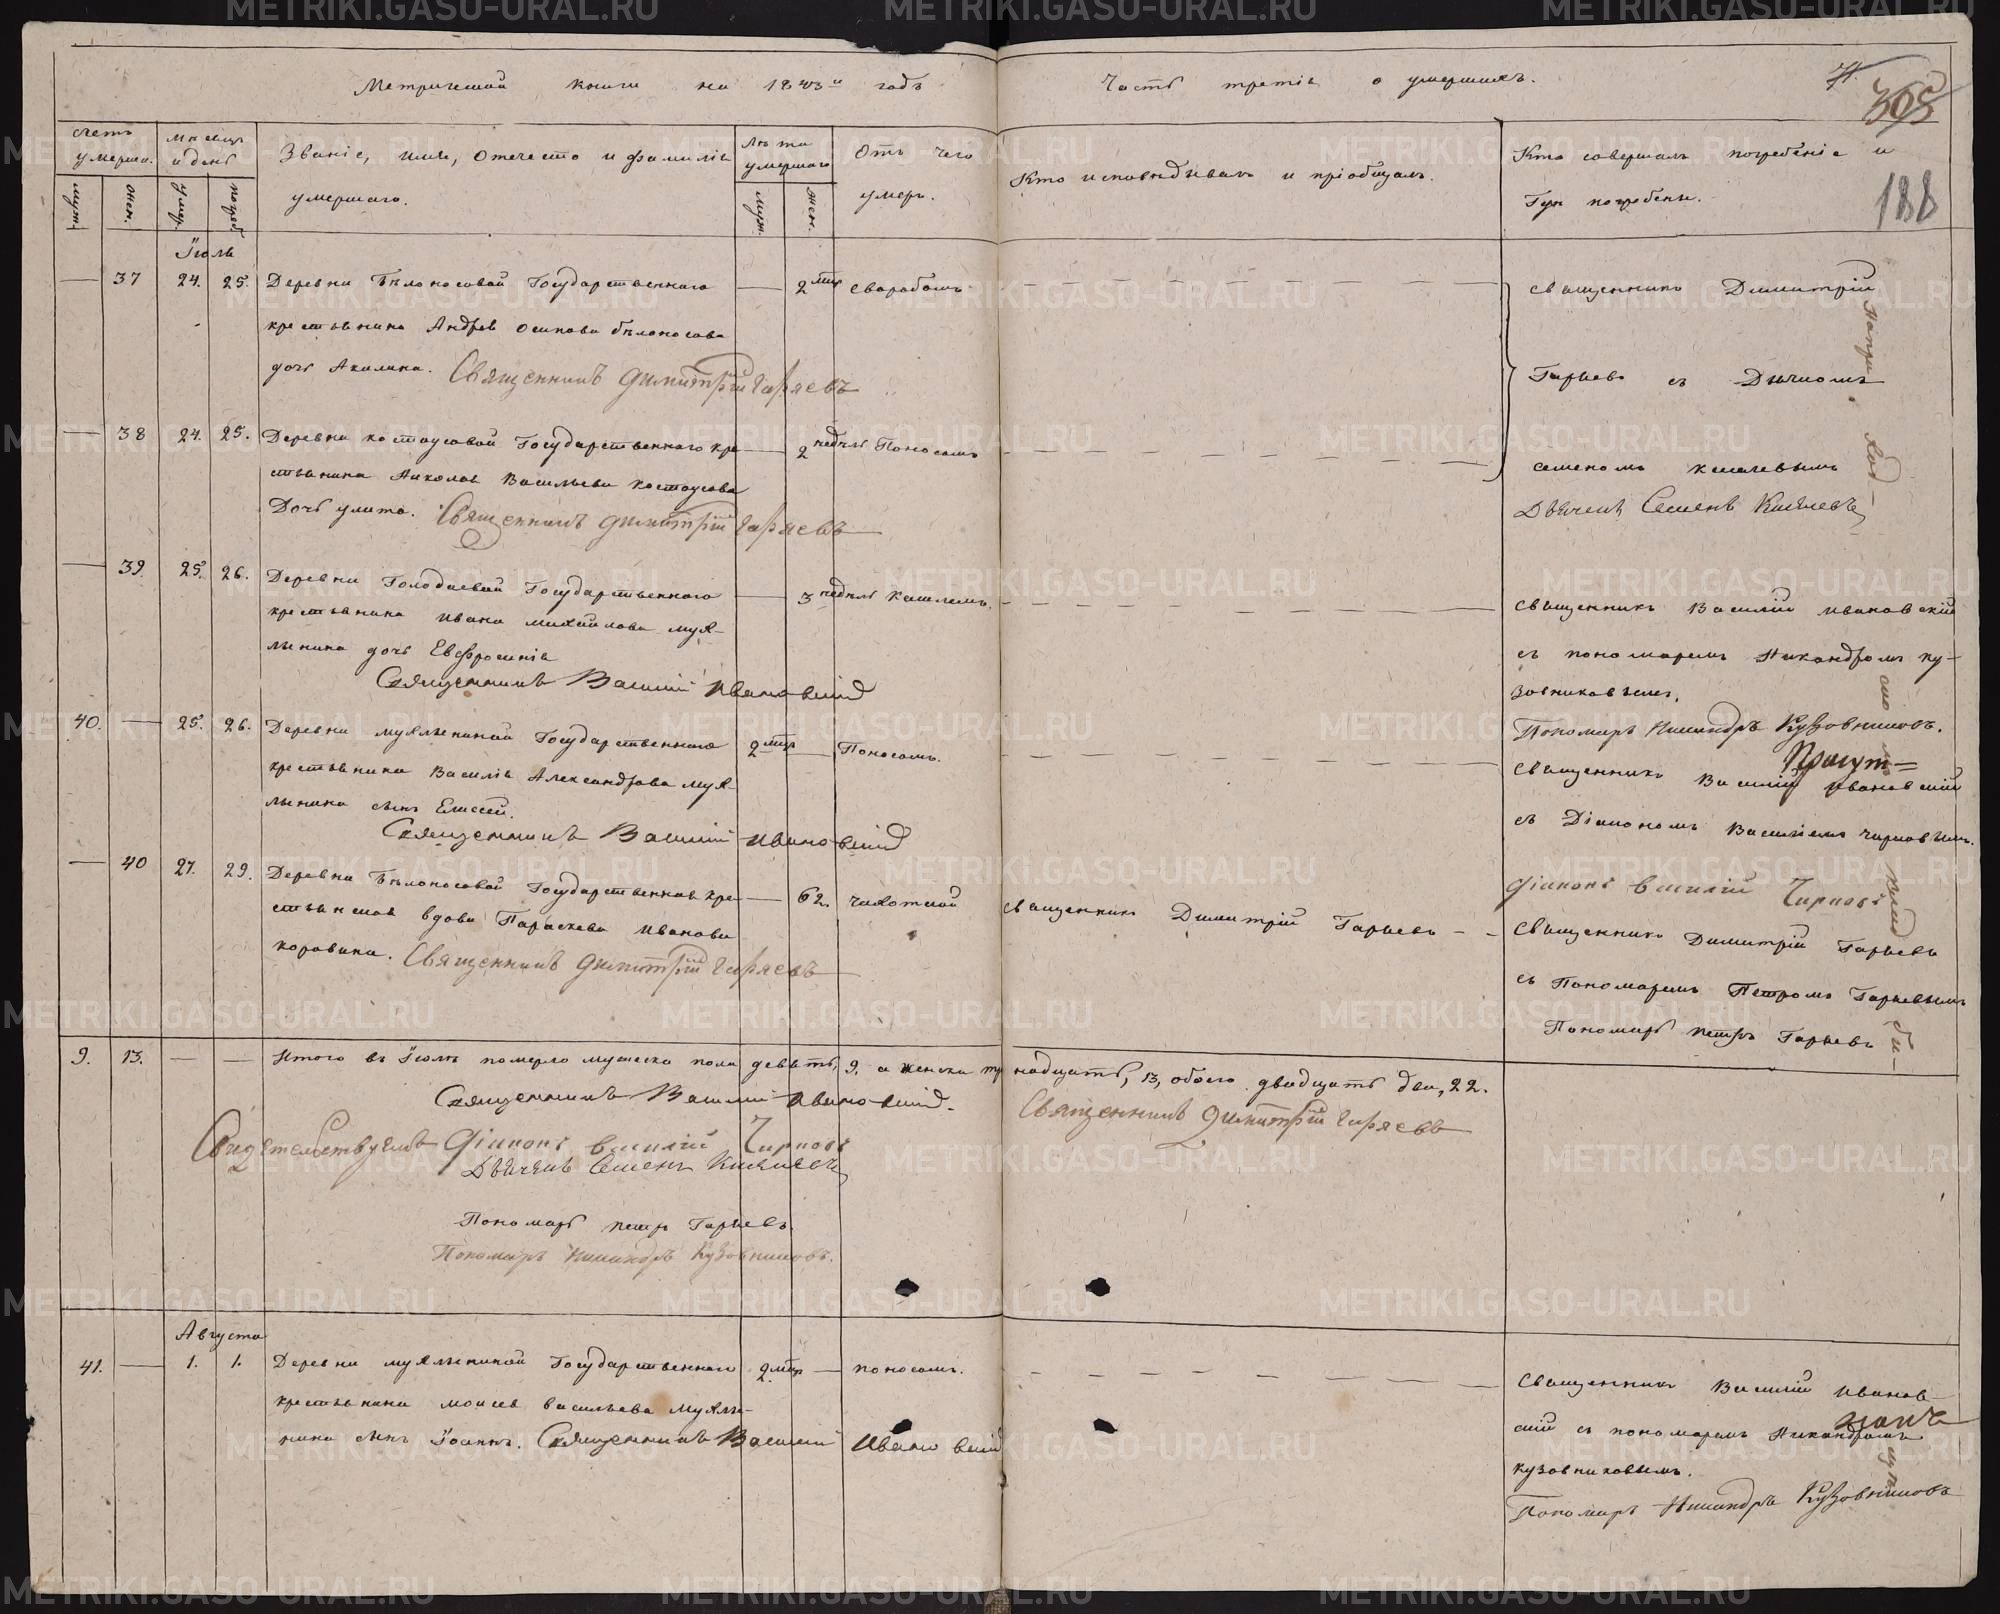 Метрической книги на 1843й годъ
Часть третія о умершихъ.
71
305
188
Счетъ умерши.
Мѣсяцъ и день
Званіе, имя, отечество и фамилія умершаго.
Лѣта умершаго
Отъ чего умеръ.
Кто исповѣдывалъ и пріобщалъ.
Кто совершалъ погребеніе и
Гдѣ погребены.
муж. жен. умер. погреб. муж. жен.
Іюль
— 37 24. 25. Деревни Бѣлоносовой Государственнаго — 2 мѣц сворабомъ
крестьянина Андрея Осипова бѣлоносова
дочь Акилина. Священникъ Димитрій Гаряевъ
Священникъ Димитрій
Гаряевъ съ Дьячкомъ
семеномъ киселевымъ
Дьячекъ Семенъ Киселевъ
— 38 24. 25. Деревни костоусовой Государственнаго кре— 2 недѣль Поносомъ
стьянина Николая Васильева костоусова
Дочь улита. Священникъ Димитрій Гаряевъ
— 39. 25. 26. Деревни Голодаевой Государственнаго — 3 недѣль Кашлемъ.
крестьянина Ивана михайлова мухл-
льнина дочь Евфросинія
Священникъ Василій Ивановскій
Священникъ Василій ивановскій
съ пономаремъ Никандромъ ку-
зовниковымъ.
Пономарь Никандръ Кузовниковъ.
40. — 25. 26. Деревни мухлыниной Государственнаго 2 мѣц — Поносомъ.
крестьянина Василія Александрова мух-
лынина сынъ Елисей.
Священникъ Василій Ивановскій
Священникъ Василій Ивановскій
съ Діакономъ Василіемъ Чирковымъ.
Діаконъ Василій Чирковъ
— 40 27. 29. Деревни Бѣлоносовой Государственная кре— 62. чахоткой
стьянская вдова Параскева Иванова
коровина. Священникъ Димитрій Гаряевъ
Священникъ Димитрій Гаряевъ - -
Священникъ Димитрій Гаряевъ
съ Пономаремъ Петромъ Гаряевымъ
Пономарь Петръ Гаряевъ
9. 13. — — Итого въ Іюлѣ померло мужеска пола девять, 9. а женска тринадцать, 13, обоего двадцать два, 22.
Священникъ Василій Ивановскій.
Священникъ Димитрій Гаряевъ
Свидетельствуемъ Діаконъ Василій Чирковъ
Дьячекъ Семенъ Киселевъ
Пономарь Петръ Гаряевъ.
Пономарь Никандръ Кузовниковъ.
Августа
41. — 1. 1. Деревни мухлыниной Государственнаго 2 мѣц — поносомъ.
крестьянина Моисея васильева мухлы-
нина сынъ Іоаннъ. Священникъ Василій Ивановскій
Священникъ Василій Иванов-
скій съ пономаремъ Никандромъ
кузовниковымъ.
Пономарь Никандръ Кузовниковъ
METRIKI.GASO-URAL.RU